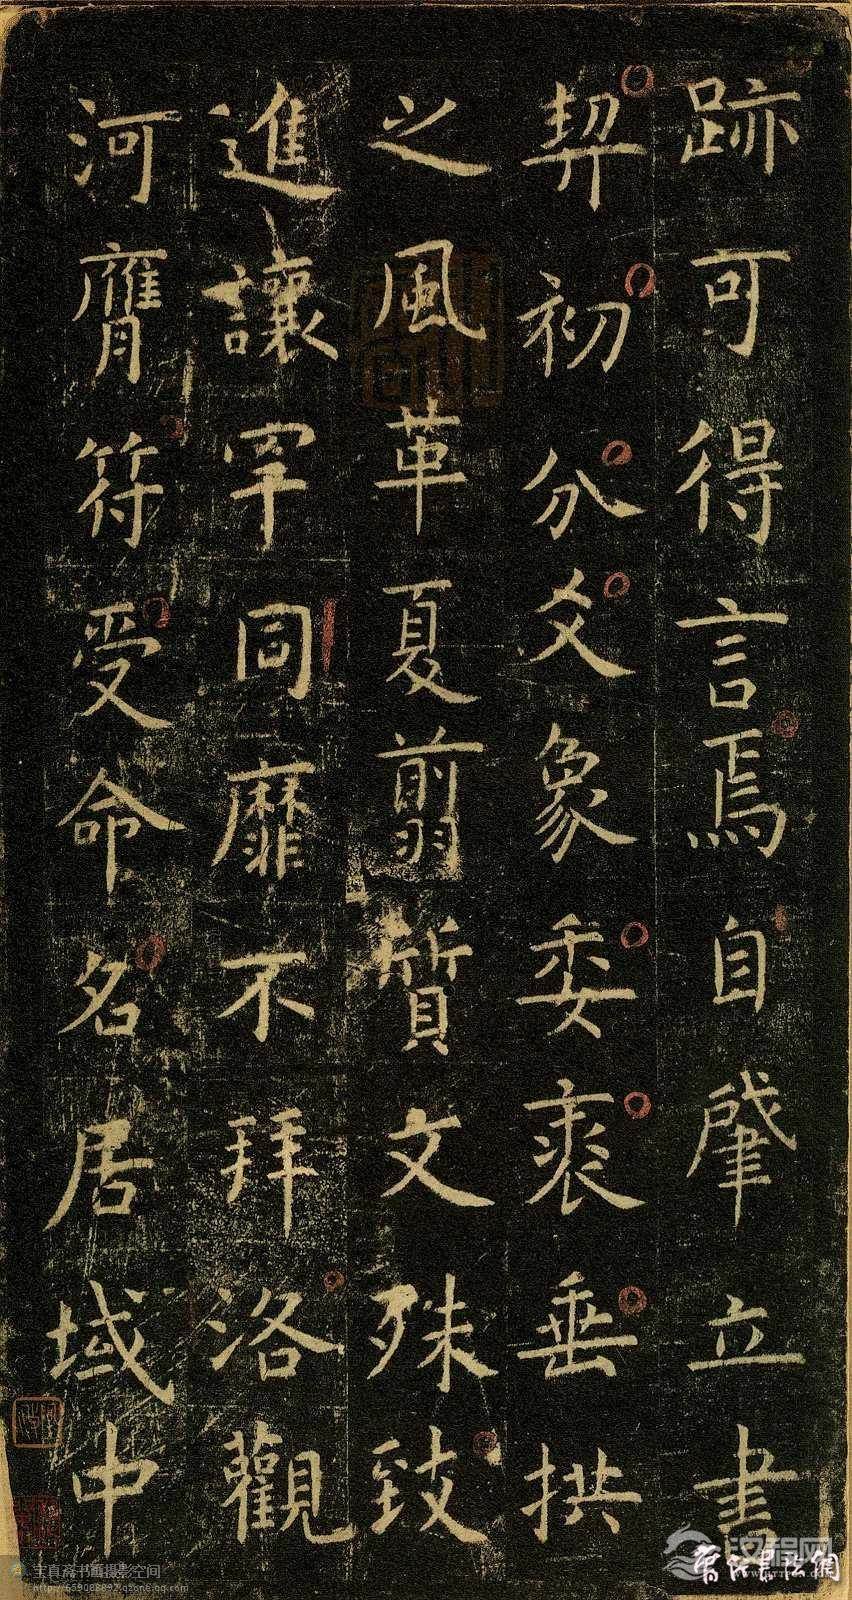 跡可得言焉自肇立書
契初分爻象委裘垂拱
之風革夏翦質文殊致
進讓罕同靡不拜洛觀
河膺符受命名居域中
王真高书画摄影空间